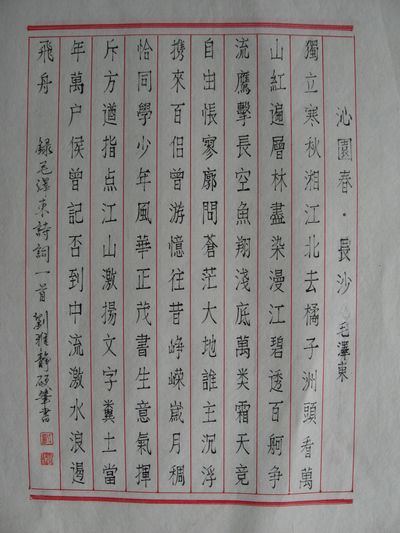 沁園春·長沙 毛澤東
獨立寒秋湘江北去橘子洲頭看萬
山紅遍層林盡染漫江碧透百舸争
流鷹擊長空魚翔淺底萬类霜天竞
自由悵寥廓問蒼茫大地誰主沉浮
携來百侣曾游憶往昔崢嶸歲月稠
恰同學少年風華正茂書生意氣揮
斥方遒指点江山激揚文字糞土當
年萬户侯曾記否到中流激水浪遏
飛舟 錄毛澤東詩詞一首 劉雅静硬筆書